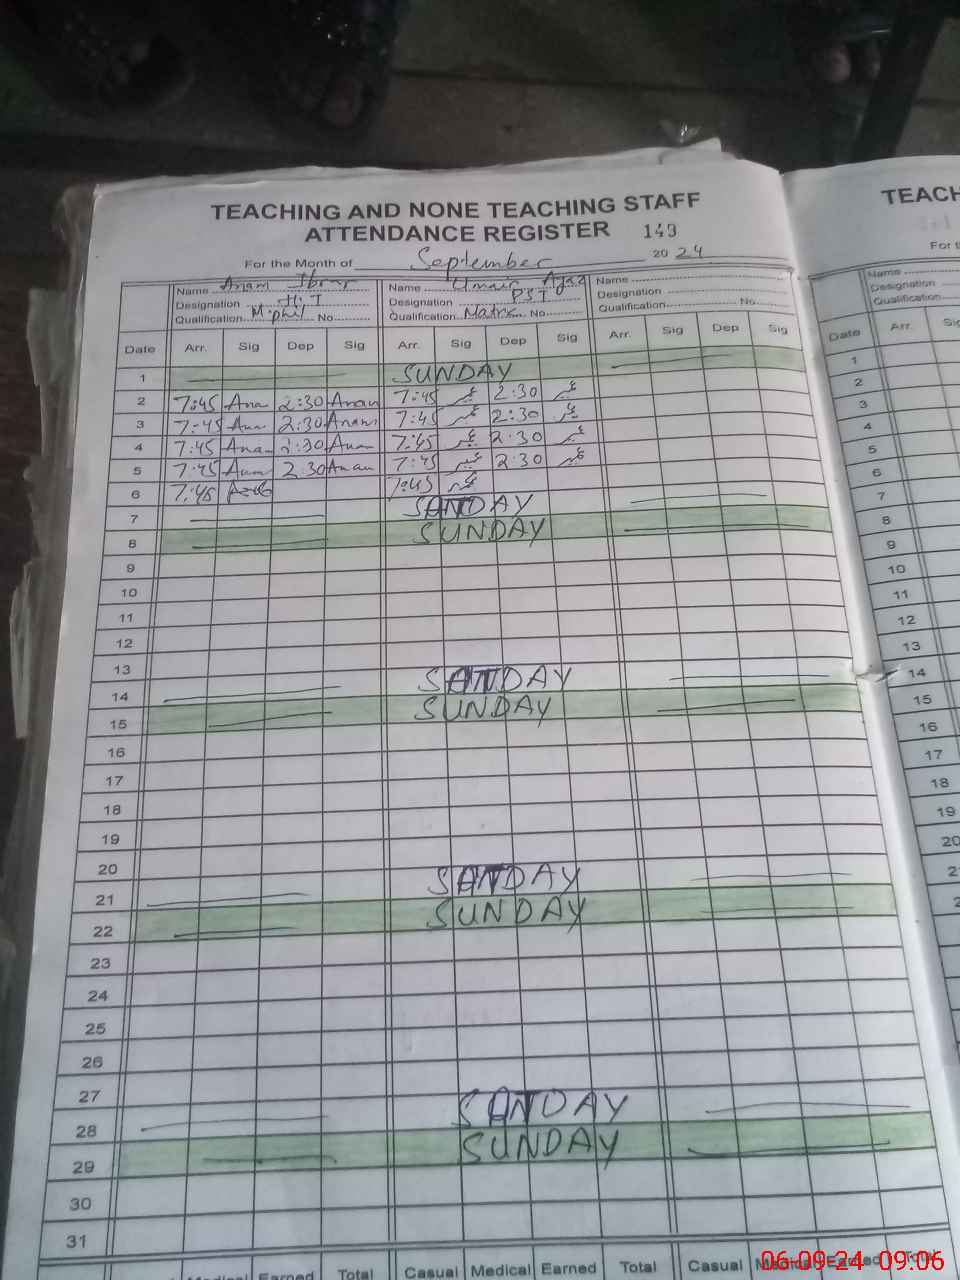 TEACHING AND NONE TEACHING STAFF
ATTENDANCE REGISTER 149
For the Month of September 2024
Name Anam Name Umair Ajaz Name
Designation H.T Designation PST Designation
Qualification M.phil No Qualification Matric No Qualification No
Date Arr. Sig Dep Sig Arr. Sig Dep Sig Arr. Sig Dep Sig
1 SUNDAY
2 7:45 Ana 2:30 Anam 7:45 عمیر 2:30 عمیر
3 7:45 2:30 Anam 7:45 عمیر 2:30 عمیر
4 7:45 Ana 2:30 7:45 عمیر 2:30 عمیر
5 7:45 2:30 Anam 7:45 عمیر 2:30 عمیر
6 7:45 7:45 عمیر
7 SATDAY
8 SUNDAY
9
10
11
12
13
14 SATDAY
15 SUNDAY
16
17
18
19
20
21 SATDAY
22 SUNDAY
23
24
25
26
27
28 SATDAY
29 SUNDAY
30
31
Medical Earned Total Casual Medical Earned Total Casual Medical Earned Total
TEACH
For t
Name
Designation
Qualification
Date Arr.
1
2
3
4
5
6
7
8
9
10
11
12
13
14
15
16
17
18
19
20
06-09-24 09:06